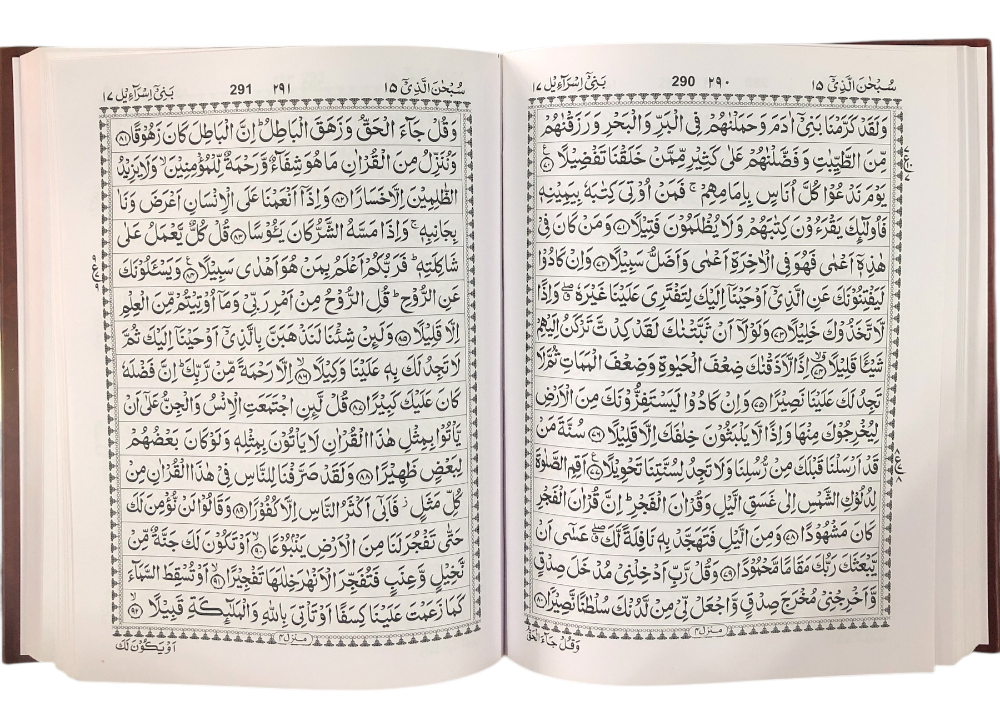 سُبْحٰنَ الَّذِیْۤ ۱۵
290 ۲۹۰
بَنِیْۤ اِسْرَآءِیْل ۱۷
وَلَقَدْ كَرَّمْنَا بَنِیْۤ اٰدَمَ وَحَمَلْنٰهُمْ فِی الْبَرِّ وَالْبَحْرِ وَرَزَقْنٰهُمْ
مِّنَ الطَّیِّبٰتِ وَفَضَّلْنٰهُمْ عَلٰی كَثِیْرٍ مِّمَّنْ خَلَقْنَا تَفْضِیْلًا ۷۰
یَوْمَ نَدْعُوْا كُلَّ اُنَاسٍۭ بِاِمَامِهِمْ ۚ فَمَنْ اُوْتِیَ كِتٰبَهٗ بِیَمِیْنِهٖ
فَاُولٰٓىِٕكَ یَقْرَءُوْنَ كِتٰبَهُمْ وَلَا یُظْلَمُوْنَ فَتِیْلًا ۷۱ وَمَنْ كَانَ فِیْ
هٰذِهٖۤ اَعْمٰی فَهُوَ فِی الْاٰخِرَةِ اَعْمٰی وَاَضَلُّ سَبِیْلًا ۷۲ وَاِنْ كَادُوْا
لَیَفْتِنُوْنَكَ عَنِ الَّذِیْۤ اَوْحَیْنَاۤ اِلَیْكَ لِتَفْتَرِیَ عَلَیْنَا غَیْرَهٗ ۖ وَاِذًا
لَّاتَّخَذُوْكَ خَلِیْلًا ۷۳ وَلَوْلَاۤ اَنْ ثَبَّتْنٰكَ لَقَدْ كِدْتَّ تَرْكَنُ اِلَیْهِمْ
شَیْـًٔا قَلِیْلًا ۷۴ اِذًا لَّاَذَقْنٰكَ ضِعْفَ الْحَیٰوةِ وَضِعْفَ الْمَمَاتِ ثُمَّ لَا
تَجِدُ لَكَ عَلَیْنَا نَصِیْرًا ۷۵ وَاِنْ كَادُوْا لَیَسْتَفِزُّوْنَكَ مِنَ الْاَرْضِ
لِیُخْرِجُوْكَ مِنْهَا وَاِذًا لَّا یَلْبَثُوْنَ خِلٰفَكَ اِلَّا قَلِیْلًا ۷۶ سُنَّةَ مَنْ
قَدْ اَرْسَلْنَا قَبْلَكَ مِنْ رُّسُلِنَا وَلَا تَجِدُ لِسُنَّتِنَا تَحْوِیْلًا ۷۷ اَقِمِ الصَّلٰوةَ
لِدُلُوْكِ الشَّمْسِ اِلٰی غَسَقِ الَّیْلِ وَقُرْاٰنَ الْفَجْرِ ؕ اِنَّ قُرْاٰنَ الْفَجْرِ
كَانَ مَشْهُوْدًا ۷۸ وَمِنَ الَّیْلِ فَتَهَجَّدْ بِهٖ نَافِلَةً لَّكَ ۖ عَسٰۤی اَنْ
یَّبْعَثَكَ رَبُّكَ مَقَامًا مَّحْمُوْدًا ۷۹ وَقُلْ رَّبِّ اَدْخِلْنِیْ مُدْخَلَ صِدْقٍ
وَّاَخْرِجْنِیْ مُخْرَجَ صِدْقٍ وَّاجْعَلْ لِّیْ مِنْ لَّدُنْكَ سُلْطٰنًا نَّصِیْرًا ۸۰
منزل ۴
وَقُلْ جَآءَ الْحَقُّ
سُبْحٰنَ الَّذِیْۤ ۱۵
291 ۲۹۱
بَنِیْۤ اِسْرَآءِیْل ۱۷
وَقُلْ جَآءَ الْحَقُّ وَزَهَقَ الْبَاطِلُ ؕ اِنَّ الْبَاطِلَ كَانَ زَهُوْقًا ۸۱
وَنُنَزِّلُ مِنَ الْقُرْاٰنِ مَا هُوَ شِفَآءٌ وَّرَحْمَةٌ لِّلْمُؤْمِنِیْنَ ۙ وَلَا یَزِیْدُ
الظّٰلِمِیْنَ اِلَّا خَسَارًا ۸۲ وَاِذَاۤ اَنْعَمْنَا عَلَی الْاِنْسَانِ اَعْرَضَ وَنَاٰ
بِجَانِبِهٖ ۚ وَاِذَا مَسَّهُ الشَّرُّ كَانَ یَـُٔوْسًا ۸۳ قُلْ كُلٌّ یَّعْمَلُ عَلٰی
شَاكِلَتِهٖ ؕ فَرَبُّكُمْ اَعْلَمُ بِمَنْ هُوَ اَهْدٰی سَبِیْلًا ۸۴ وَیَسْـَٔلُوْنَكَ
عَنِ الرُّوْحِ ؕ قُلِ الرُّوْحُ مِنْ اَمْرِ رَبِّیْ وَمَاۤ اُوْتِیْتُمْ مِّنَ الْعِلْمِ
اِلَّا قَلِیْلًا ۸۵ وَلَىِٕنْ شِئْنَا لَنَذْهَبَنَّ بِالَّذِیْۤ اَوْحَیْنَاۤ اِلَیْكَ ثُمَّ
لَا تَجِدُ لَكَ بِهٖ عَلَیْنَا وَكِیْلًا ۸۶ اِلَّا رَحْمَةً مِّنْ رَّبِّكَ ؕ اِنَّ فَضْلَهٗ
كَانَ عَلَیْكَ كَبِیْرًا ۸۷ قُلْ لَّىِٕنِ اجْتَمَعَتِ الْاِنْسُ وَالْجِنُّ عَلٰۤی اَنْ
یَّاْتُوْا بِمِثْلِ هٰذَا الْقُرْاٰنِ لَا یَاْتُوْنَ بِمِثْلِهٖ وَلَوْ كَانَ بَعْضُهُمْ
لِبَعْضٍ ظَهِیْرًا ۸۸ وَلَقَدْ صَرَّفْنَا لِلنَّاسِ فِیْ هٰذَا الْقُرْاٰنِ مِنْ
كُلِّ مَثَلٍ ؗ فَاَبٰۤی اَكْثَرُ النَّاسِ اِلَّا كُفُوْرًا ۸۹ وَقَالُوْا لَنْ نُّؤْمِنَ لَكَ
حَتّٰی تَفْجُرَ لَنَا مِنَ الْاَرْضِ یَنْۢبُوْعًا ۹۰ اَوْ تَكُوْنَ لَكَ جَنَّةٌ مِّنْ
نَّخِیْلٍ وَّعِنَبٍ فَتُفَجِّرَ الْاَنْهٰرَ خِلٰلَهَا تَفْجِیْرًا ۹۱ اَوْ تُسْقِطَ السَّمَآءَ
كَمَا زَعَمْتَ عَلَیْنَا كِسَفًا اَوْ تَاْتِیَ بِاللّٰهِ وَالْمَلٰٓىِٕكَةِ قَبِیْلًا ۹۲
منزل ۴
اَوْ یَكُوْنَ لَكَ